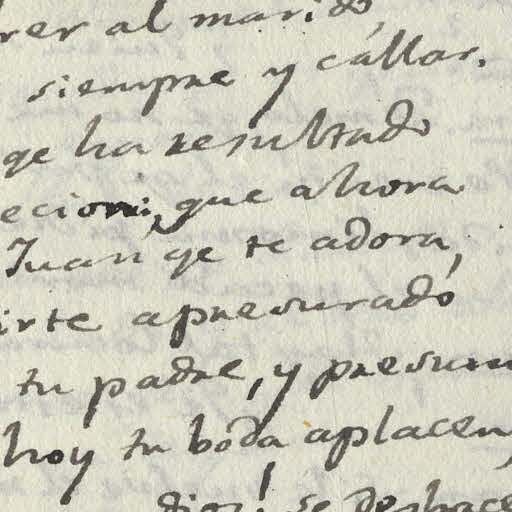 rer al marido,
siempre y cállar.
qe ha resultado
ecion; que ahora
Juan qe te adora,
irte apresurado
tu padre, y presum
hoy tu boda aplacen,
dios! se deshace